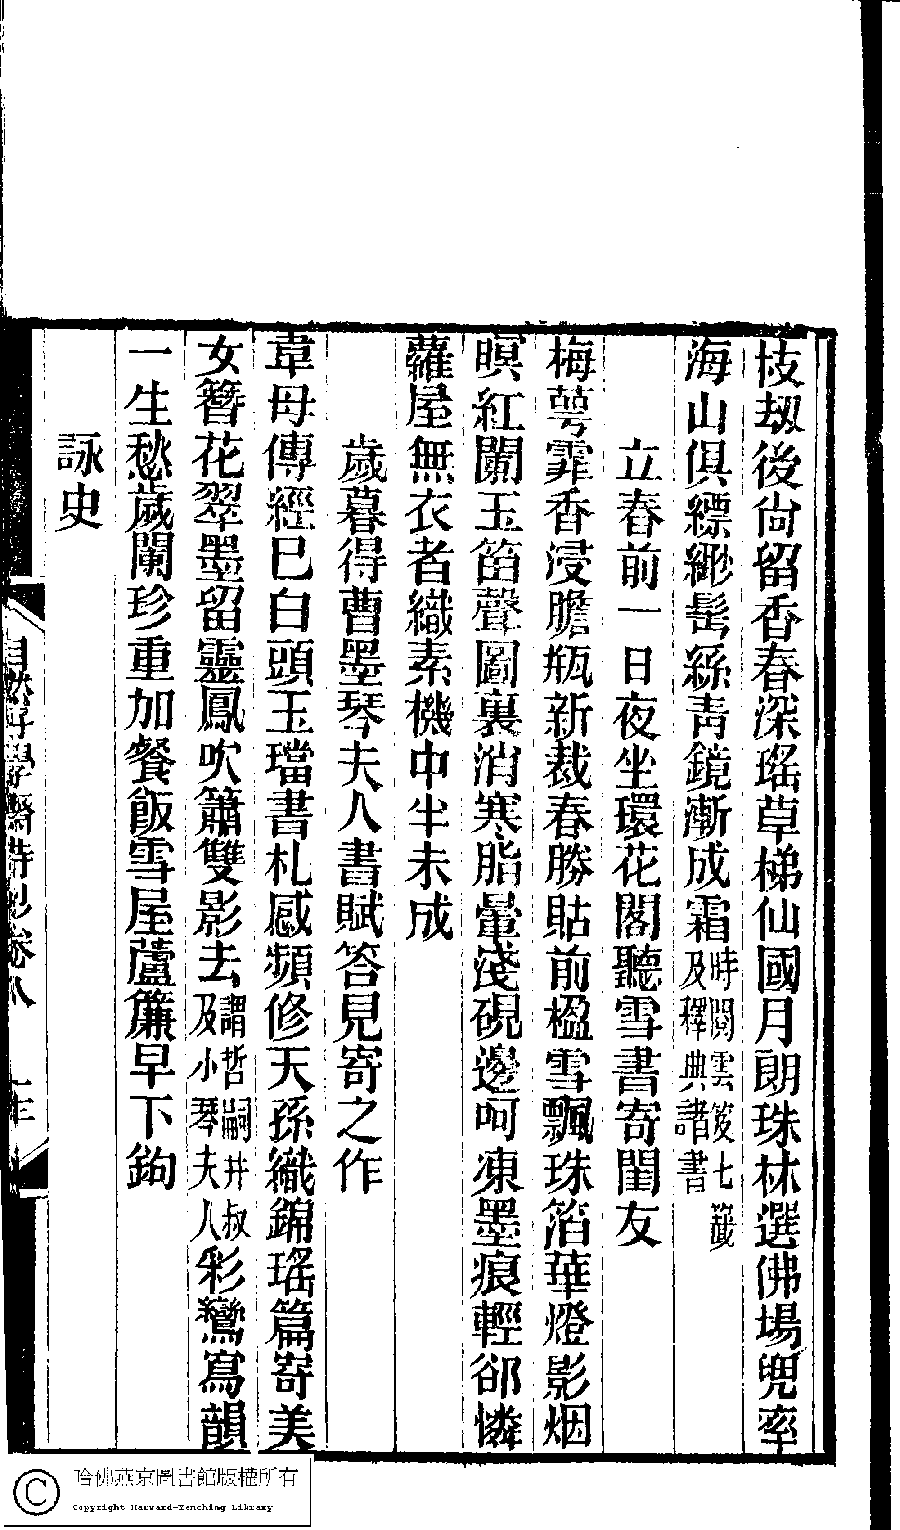 枝刼後尙留香春深瑤草梯仙國月朗珠林選佛場兜率
海山俱縹緲髩絲靑鏡漸成霜時閱雲笈七籤及釋典諸書
立春前一日夜坐環花閣聽雪書寄閨友
梅萼霏香浸膽瓶新裁春勝貼前楹雪飄珠箔華燈影烟
暝紅闌玉笛聲圖裏消寒脂暈淺硯邊呵凍墨痕輕郤憐
蘿屋無衣者織素機中半未成
歲暮得曹墨琴夫人書賦答見寄之作
韋母傳經已白頭玉璫書札感頻修天孫織錦瑤篇寄美
女簪花翠墨留靈鳳吹簫雙影去謂哲嗣井叔及小琴夫人彩鸞寫韻
一生愁歲闌珍重加餐飯雪屋蘆簾早下鉤
詠史
自然好學齋詩鈔卷八
哈佛燕京圖書館版權所有
Copyright Harvard-Yenching Library